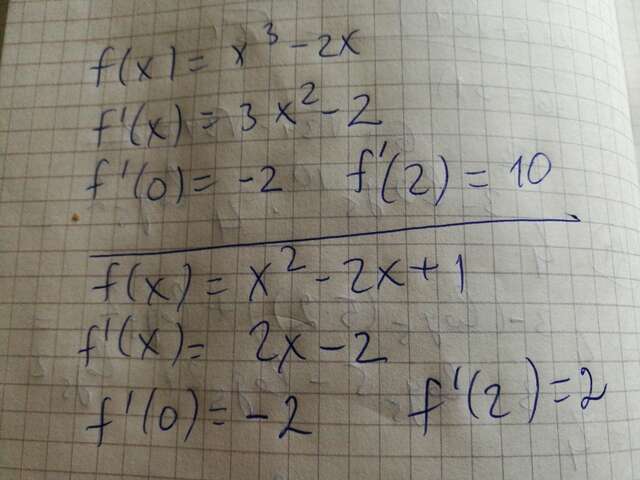 f(x) = x³ - 2x
f'(x) = 3x² - 2
f'(0) = -2 f'(2) = 10
f(x) = x² - 2x + 1
f'(x) = 2x - 2
f'(0) = -2 f'(2) = 2